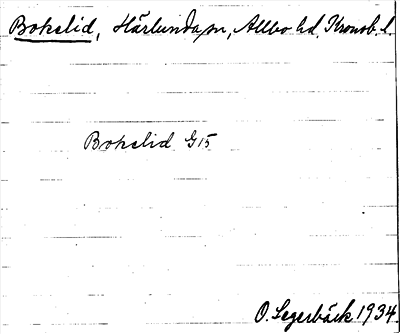 Bokelid, Härlunda sn, Allbo hd, Kronob. l.
Bokelid G15
O. Segerbäck 1934.